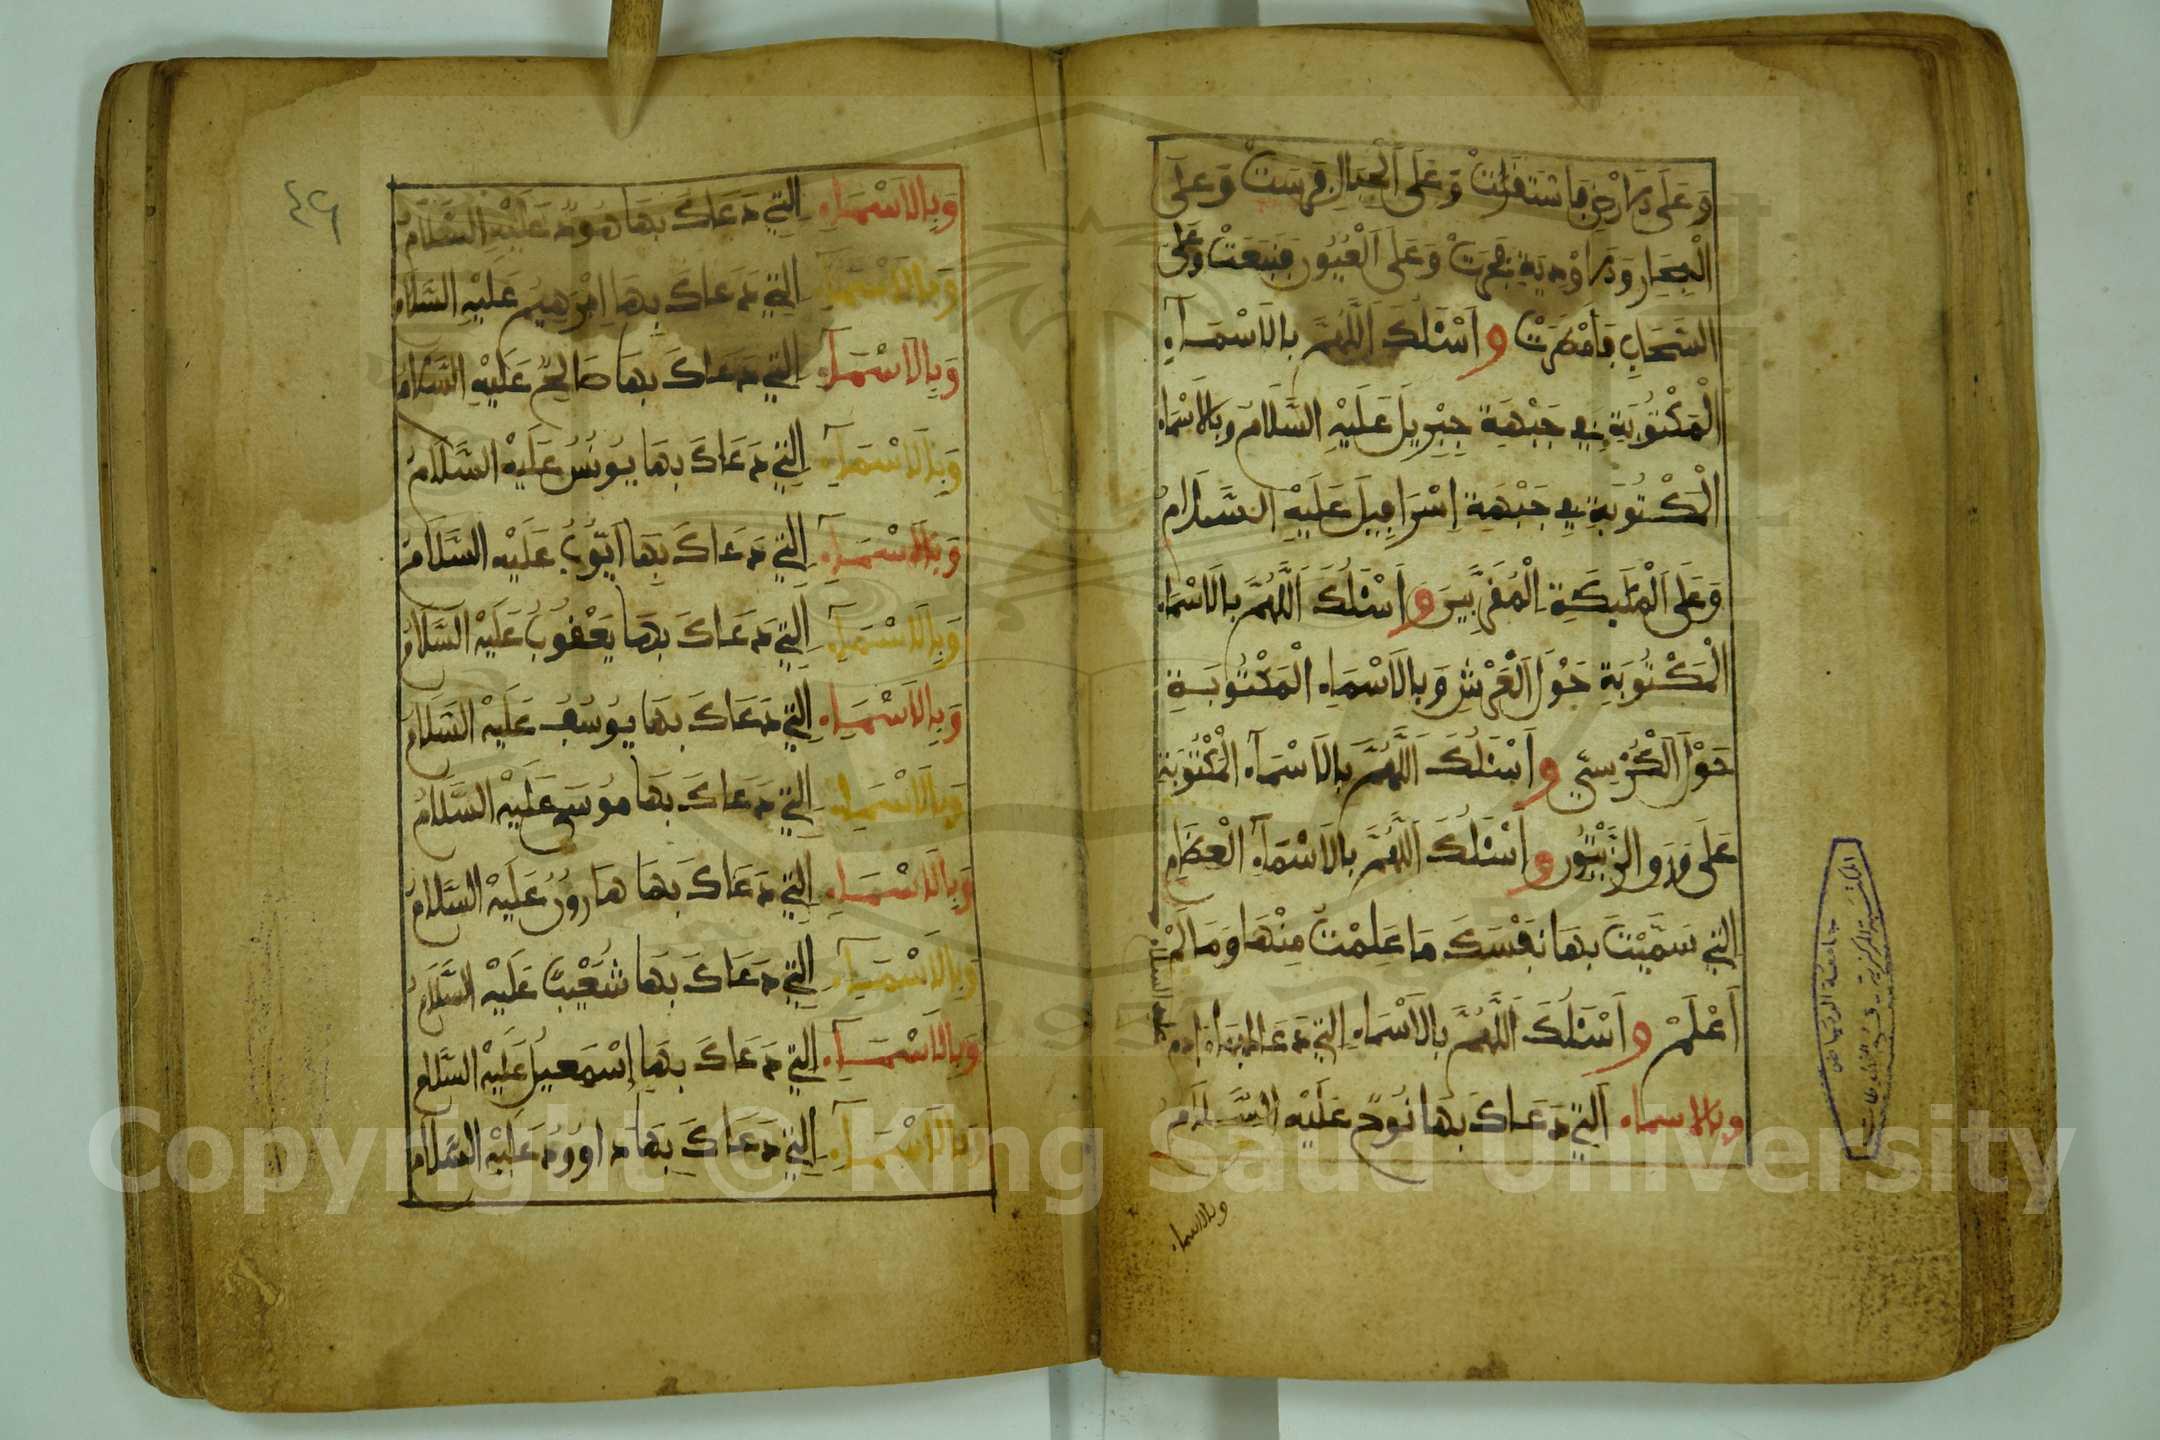 وَعَلَى الَارْضِ فَاسْتَقَرَّتْ وَعَلَى الْجِبَالِ فَرَسَتْ وَعَلَى
الْبِحَارِ وَالَاوْدِيَةِ فَجَرَتْ وَعَلَى الْعُيُونِ فَنَبَعَتْ وَعَلَى
السَّحَابِ فَأَمْطَرَتْ وَأَسْئَلُكَ اَللَّهُمَّ بِالَاسْمَآءِ
الْمَكْتُوبَةِ فِي جَبْهَةِ جِبْرِيلَ عَلَيْهِ السَّلَامُ وَبِالَاسْمَاءِ
الْمَكْتُوبَةِ فِي جَبْهَةِ إِسْرَافِيلَ عَلَيْهِ السَّلَامُ
وَعَلَى الْمَلَٰئِكَةِ الْمُقَرَّبِينَ وَأَسْئَلُكَ اَللَّهُمَّ بِالَاسْمَاءِ
الْمَكْتُوبَةِ حَوْلَ الْعَرْشِ وَبِالَاسْمَاءِ الْمَكْتُوبَةِ
حَوْلَ الْكُرْسِيِّ وَأَسْئَلُكَ اَللَّهُمَّ بِالَاسْمَآءِ الْمَكْتُوبَةِ
عَلَى وَرَقِ الزَّيْتُونِ وَأَسْئَلُكَ اَللَّهُمَّ بِالَاسْمَآءِ الْعِظَامِ
الَّتِي سَمَّيْتَ بِهَا نَفْسَكَ مَا عَلِمْتُ مِنْهَا وَمَا لَمْ
أَعْلَمْ وَأَسْئَلُكَ اَللَّهُمَّ بِالَاسْمَاءِ الَّتِي دَعَاكَ بِهَا ءَادَمُ
عليه السلام
وبالاسماء الَّتِي دَعَاكَ بِهَا نُوحٌ عَلَيْهِ السَّلَامُ
وبالاسماء
جامعة الرياض
المكتبة المركزية - قسم المخطوطات
٤٦
وَبِالَاسْمَاءِ الَّتِي دَعَاكَ بِهَا هُودٌ عَلَيْهِ السَّلَامُ
وَبِالَاسْمَاءِ الَّتِي دَعَاكَ بِهَا إِبْرَهِيمُ عَلَيْهِ السَّلَامُ
وَبِالَاسْمَآءِ الَّتِي دَعَاكَ بِهَا صَالِحٌ عَلَيْهِ السَّلَامُ
وَبِالَاسْمَآءِ الَّتِي دَعَاكَ بِهَا يُونُسُ عَلَيْهِ السَّلَامُ
وَبِالَاسْمَآءِ الَّتِي دَعَاكَ بِهَا أَيُّوبُ عَلَيْهِ السَّلَامُ
وَبِالَاسْمَآءِ الَّتِي دَعَاكَ بِهَا يَعْقُوبُ عَلَيْهِ السَّلَامُ
وَبِالَاسْمَاءِ الَّتِي دَعَاكَ بِهَا يُوسُفُ عَلَيْهِ السَّلَامُ
وَبِالَاسْمَاءِ الَّتِي دَعَاكَ بِهَا مُوسَى عَلَيْهِ السَّلَامُ
وَبِالَاسْمَاءِ الَّتِي دَعَاكَ بِهَا هَارُونُ عَلَيْهِ السَّلَامُ
وَبِالَاسْمَآءِ الَّتِي دَعَاكَ بِهَا شُعَيْبٌ عَلَيْهِ السَّلَامُ
وَبِالَاسْمَآءِ الَّتِي دَعَاكَ بِهَا إِسْمَعِيلُ عَلَيْهِ السَّلَامُ
وَبِالَاسْمَآءِ الَّتِي دَعَاكَ بِهَا دَاوُودُ عَلَيْهِ السَّلَامُ
1957
Copyright © King Saud University